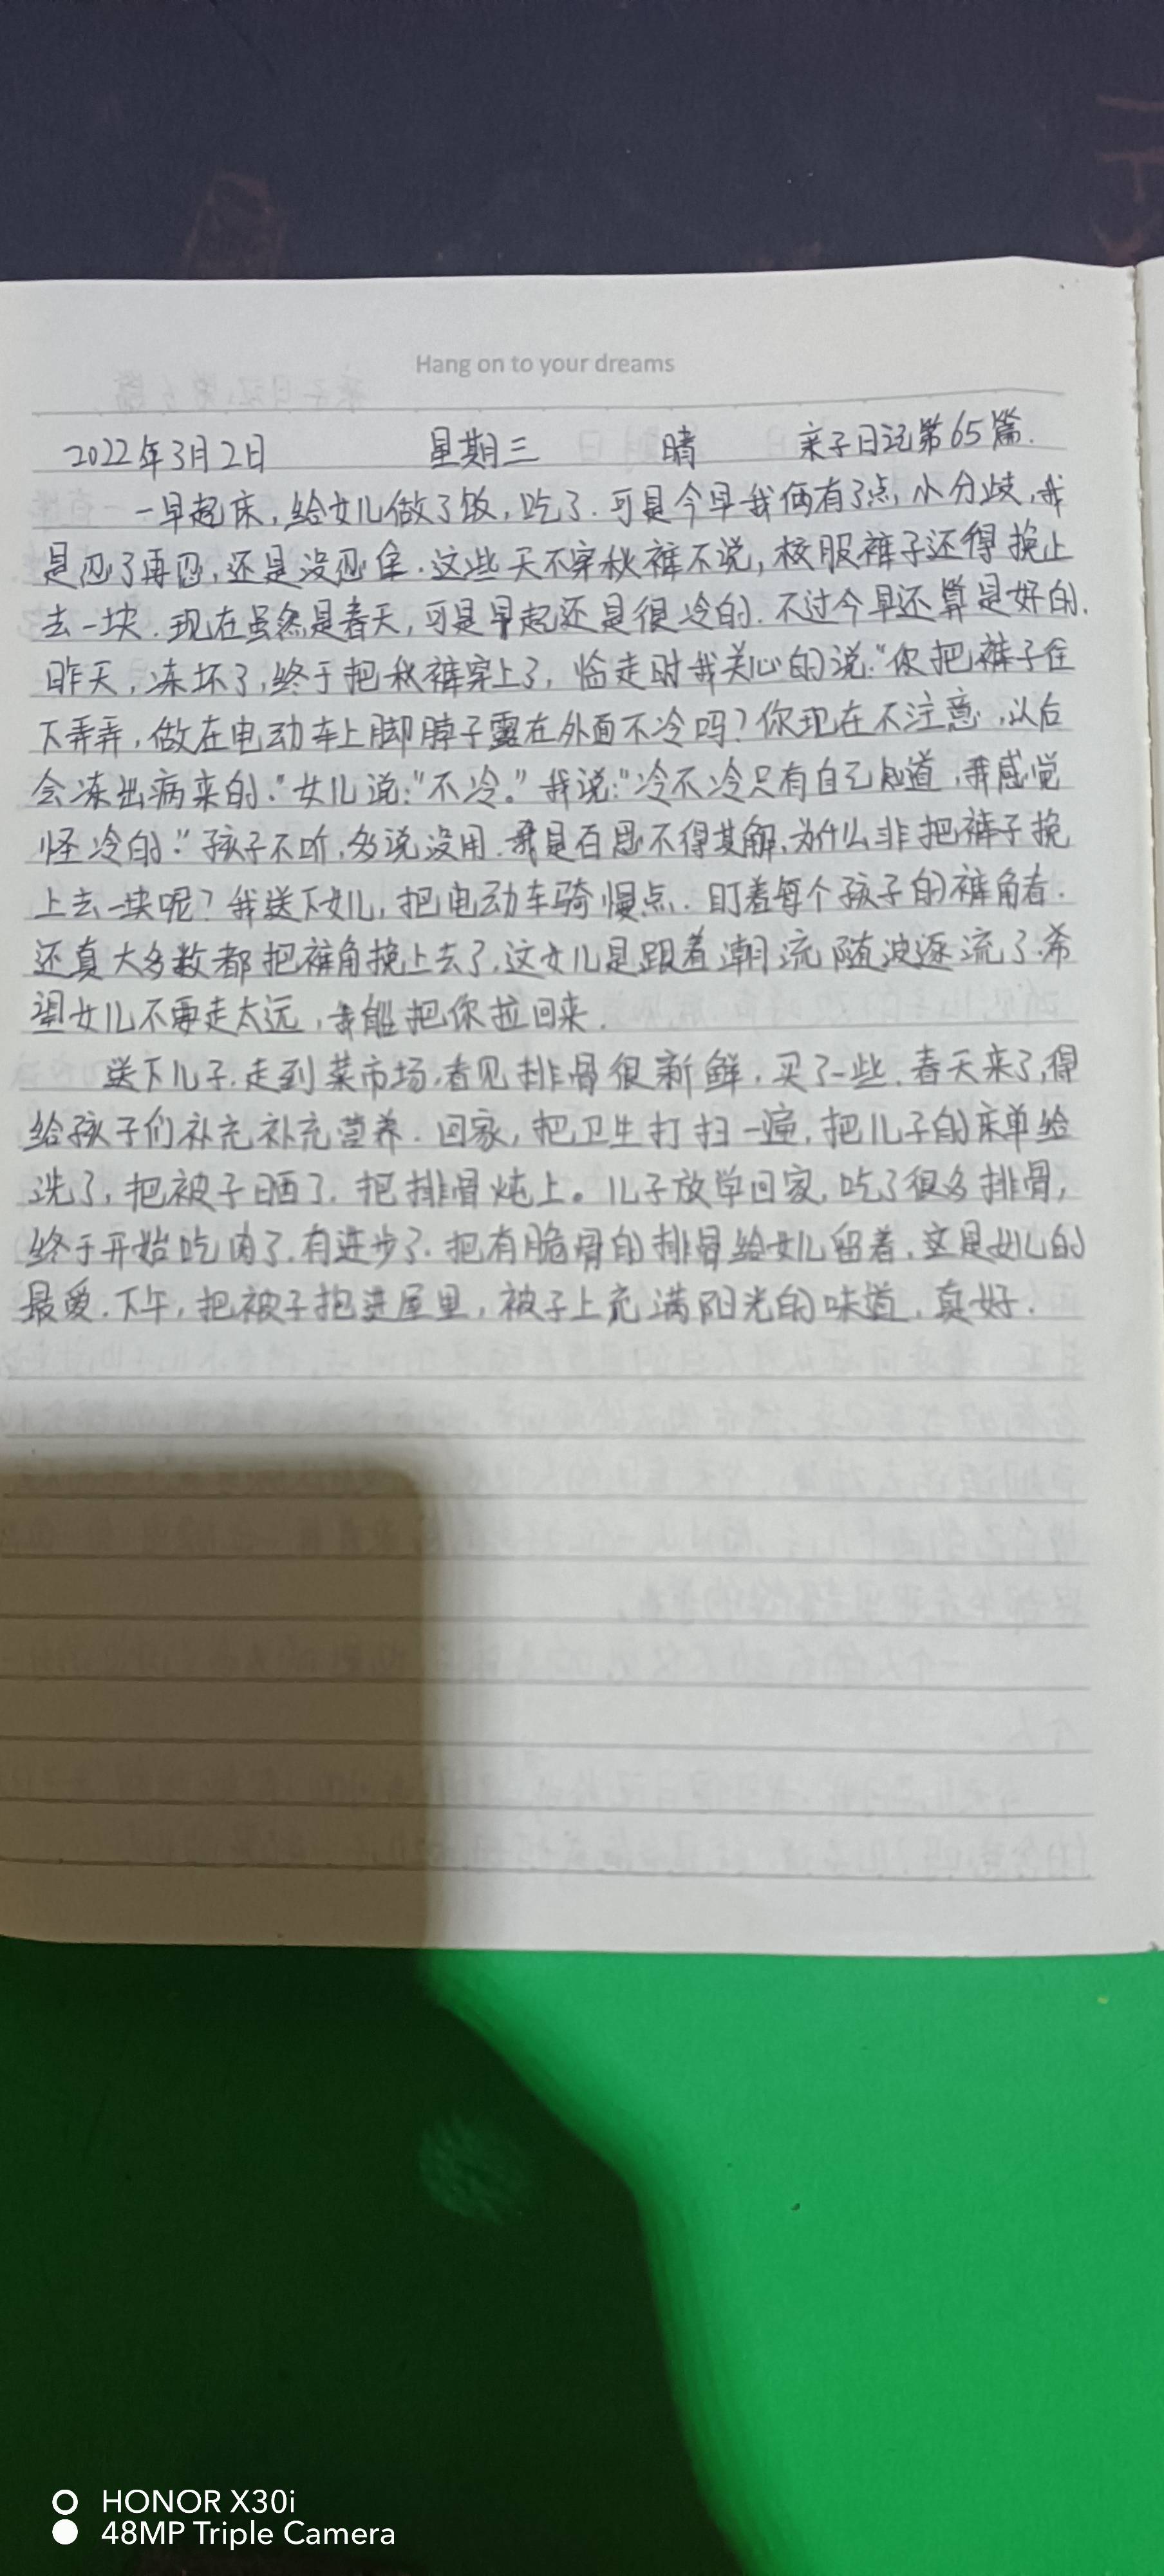 Hang on to your dreams
2022年3月2日 星期三 晴 亲子日记第65篇.
一早起床,给女儿做了饭,吃了.可是今早我俩有了点小分歧,我
是忍了再忍,还是没忍住.这些天不穿秋裤不说,校服裤子还得挽上
去一块.现在虽然是春天,可是早起还是很冷的.不过今早还算是好的.
昨天,冻坏了,终于把秋裤穿上了,临走时我关心的说:“你把裤子往
下弄弄,做在电动车上脚脖子露在外面不冷吗?你现在不注意,以后
会冻出病来的.”女儿说:“不冷。”我说:“冷不冷只有自己知道,我感觉
怪冷的.”孩子不听,多说没用.我是百思不得其解,为什么非把裤子挽
上去一块呢?我送下女儿,把电动车骑慢点.盯着每个孩子的裤角看.
还真大多数都把裤角挽上去了,这女儿是跟着潮流随波逐流了.希
望女儿不要走太远,我能把你拉回来.
送下儿子,走到菜市场,看见排骨很新鲜,买了一些.春天来了,得
给孩子们补充补充营养.回家,把卫生打扫一遍,把儿子的床单给
洗了,把被子晒了.把排骨炖上。儿子放学回家,吃了很多排骨,
终于开始吃肉了.有进步了.把有脆骨的排骨给女儿留着,这是女儿的
最爱.下午,把被子抱进屋里,被子上充满阳光的味道,真好.
HONOR X30i
48MP Triple Camera